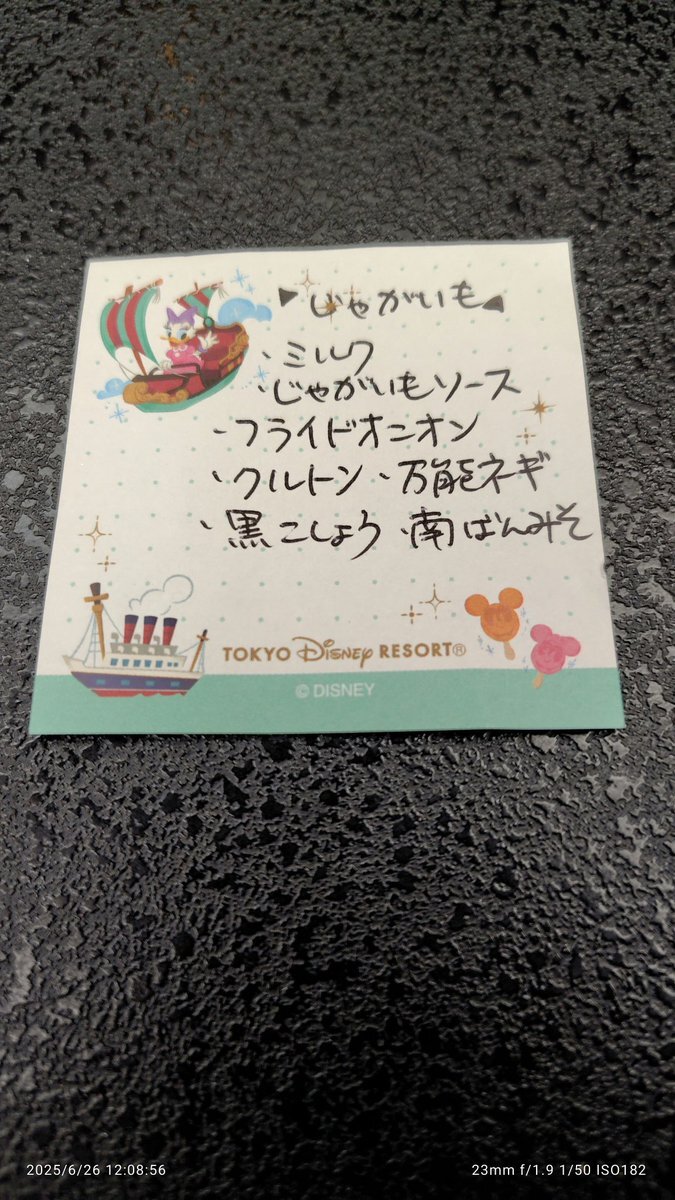 ▶じゃがいも◀
・ミルク
・じゃがいもソース
・フライドオニオン
・クルトン・万能ネギ
・黒こしょう・南ばんみそ
TOKYO Disney RESORT®
© DISNEY
2025/6/26 12:08:56
23mm f/1.9 1/50 ISO182